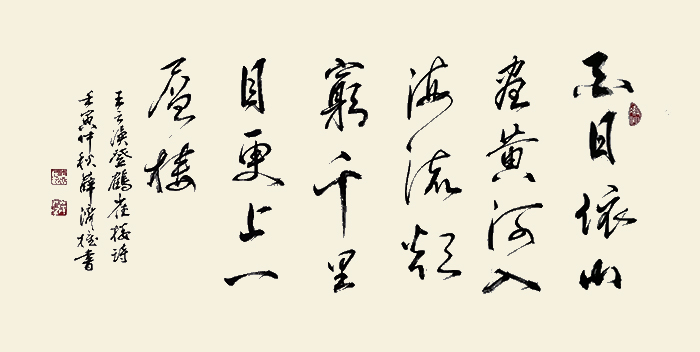 白日依山
盡黄河入
海流欲
窮千里
目更上一
層樓
王之渙登鸛雀樓詩
壬寅仲秋薛濟書